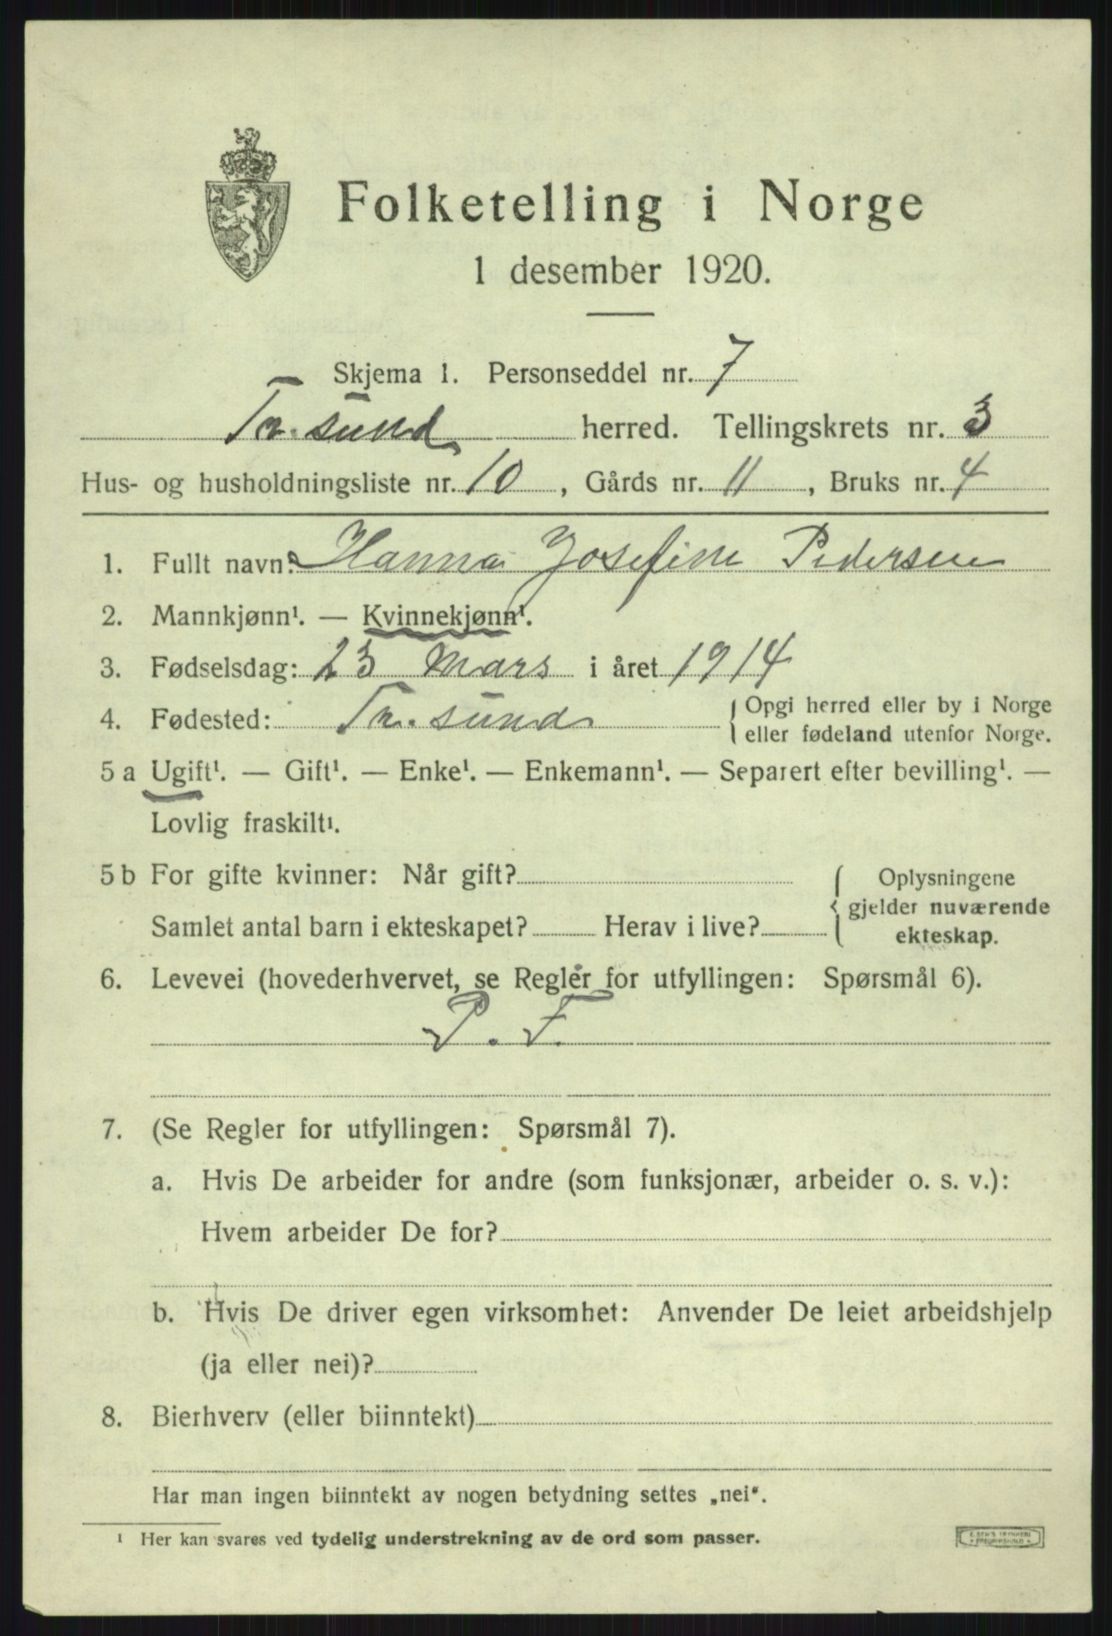 Folketelling i Norge
1 desember 1920.
Skjema 1. Personseddel nr. 7
Tr. sund herred. Tellingskrets nr. 3
Hus- og husholdningsliste nr. 10, Gårds nr. 11, Bruks nr. 4
1. Fullt navn: Hanna Josefine Pedersen
2. Mannkjønn¹. — Kvinnekjønn¹.
3. Fødselsdag: 23 Mars i året 1914
4. Fødested: Tr. sund { Opgi herred eller by i Norge
eller fødeland utenfor Norge.
5 a Ugift¹. — Gift¹. — Enke¹. — Enkemann¹. — Separert efter bevilling¹. —
Lovlig fraskilt¹.
5 b For gifte kvinner: Når gift?
Samlet antal barn i ekteskapet? Herav i live?
{ Oplysningene
gjelder nuværende
ekteskap.
6. Levevei (hovederhvervet, se Regler for utfyllingen: Spørsmål 6).
P. F.
7. (Se Regler for utfyllingen: Spørsmål 7).
a. Hvis De arbeider for andre (som funksjonær, arbeider o. s. v.):
Hvem arbeider De for?
b. Hvis De driver egen virksomhet: Anvender De leiet arbeidshjelp
(ja eller nei)?
8. Bierhverv (eller biinntekt)
Har man ingen biinntekt av nogen betydning settes „nei“.
¹ Her kan svares ved tydelig understrekning av de ord som passer.